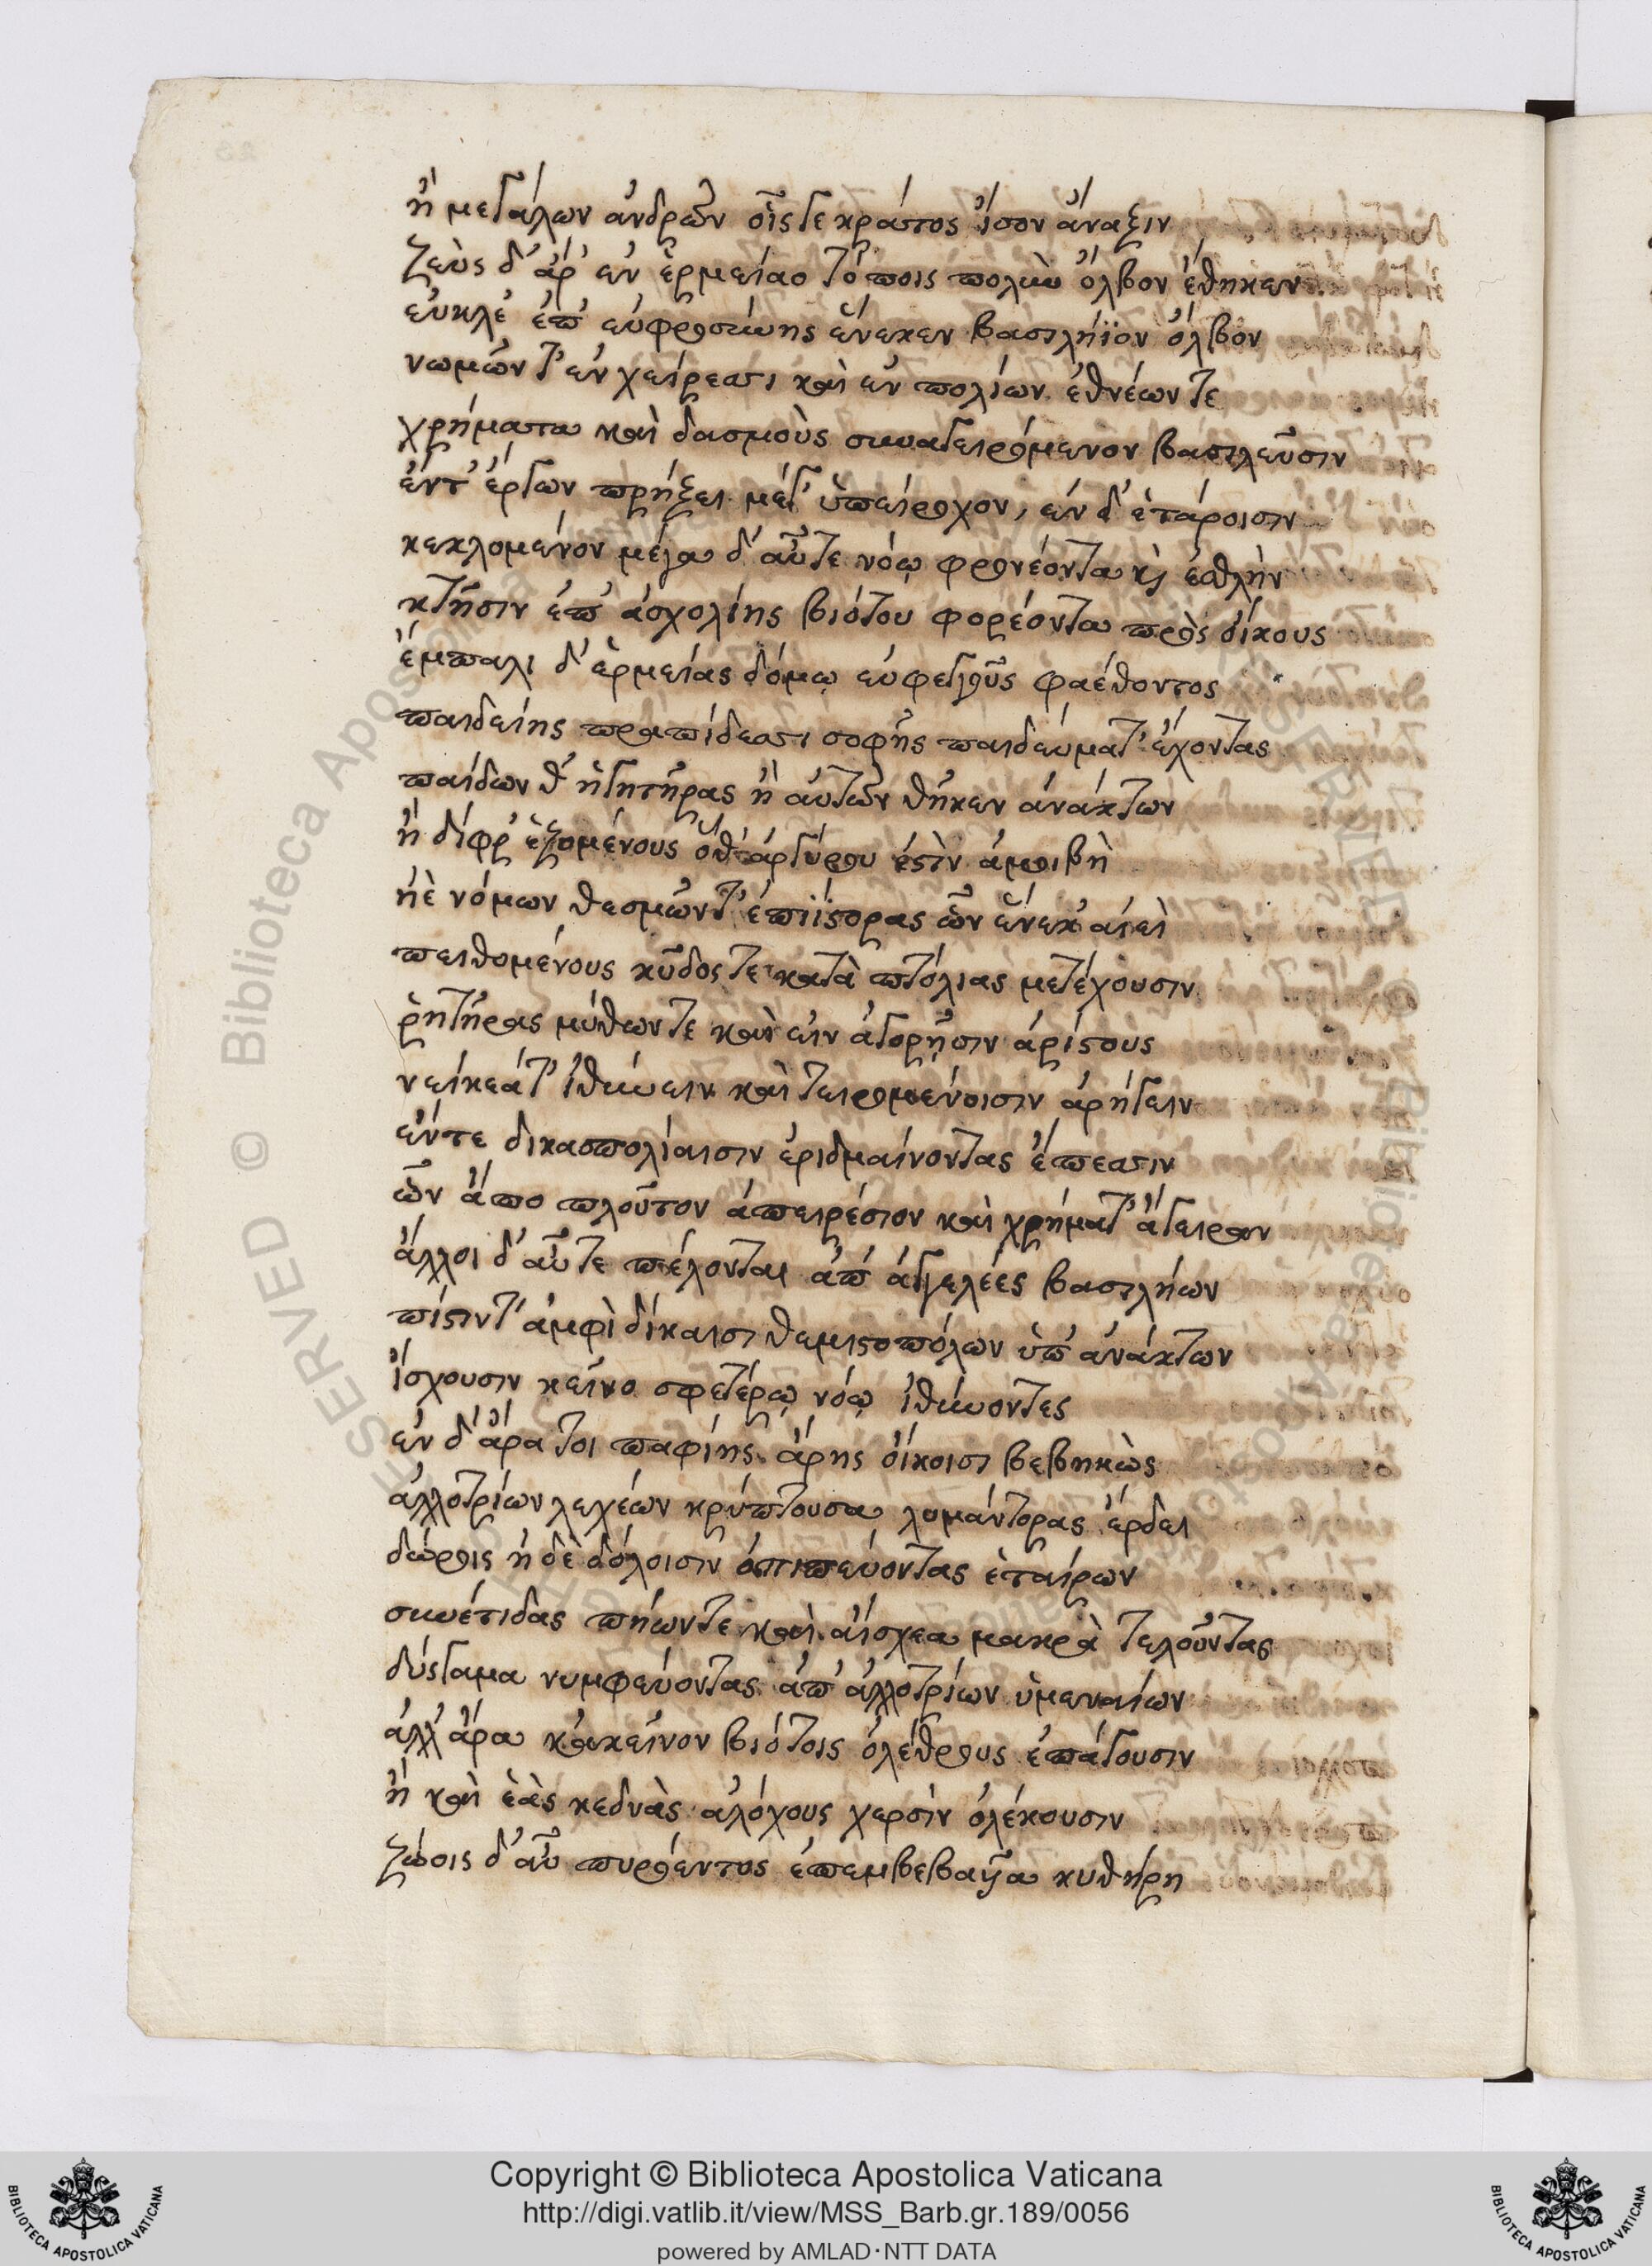 ἢ μεγάλων ἀνδρῶν οἷς τε κράτος ἶσον ἄναξιν
ζεὺς δ' ἄρ' ἐν ἑρμείαο τόποις πολὺν ὄλβον ἔθηκεν
εὐκλέ' ἐπ' εὐφροσύνης ἕνεκεν βασιλήϊον ὄλβον
νωμῶντ' ἐν χείρεσσι καὶ ἐν πολίων ἐθνέων τε
χρήματα καὶ δασμοὺς συναγειρόμενον βασιλεῦσιν
ἔντ' ἔργων πρήξει μέγ' ὑπείροχον, ἐν δ' ἑτάροισιν
κεκλομένον μέγα δ' αὖτε νόῳ φρονέοντα κὶ ἐσθλὴν
κτῆσιν ἐπ' ἀσχολίης βιότου φορέοντα πρὸς οἴκους
ἔμπαλι δ' ἑρμείας δόμῳ εὐφεγγοῦς φαέθοντος
παιδείης πραπίδεσσι σοφῆς παιδεύματ' ἔχοντας
παίδων θ' ἡγητῆρας ἢ αὐτῶν θῆκεν ἀνάκτων
ἢ δίφρ' ἑζομένους ὅθ' ἀργύρου ἐστὶν ἀμοιβὴ
ἠὲ νόμων θεσμῶν τ' ἐπιίστορας ὧν ἕνεκ' αἰεὶ
πειθομένους κῦδος τε κατὰ πτόλιας μετέχουσιν
ῥητῆρας μύθων τε καὶ εἰν ἀγορῇσιν ἀρίστους
νείκεά τ' ἰθύνειν καὶ τειρομένοισιν ἀρήγειν
ἔν τε δικασπολίαισιν ἐριδμαίνοντας ἔπεσσιν
ὧν ἄπο πλοῦτον ἀπειρέσιον καὶ χρήματ' ἄγειραν
ἄλλοι δ' αὖτε πέλονται ἀπ' ἀγγελέες βασιλήων
πίστιν τ' ἀμφὶ δίκαισι θεμιστοπόλων ὑπ' ἀνάκτων
ἴσχουσιν κεῖνο σφετέρῳ νόῳ ἰθύνοντες
ἐν δ' ἄρα τοι παφίης ἄρης οἴκοισι βεβηκὼς
ἀλλοτρίων λεχέων κρύπτουσα λυμάντορας ἔρδει
δώροις ἠ δὲ δόλοισιν ὀπιπεύοντας ἑταίρων
συνέτιδας πηῶν τε καὶ αἴσχεα μακρὰ τελοῦντας
δύσγαμα νυμφεύοντας ἀπ' ἀλλοτρίων ὑμεναίων
ἀλλ' ἄρα κἀκεῖνον βιότοις ὀλέθρους ἐπάγουσιν
ἢ καὶ ἑὰς κεδνὰς ἀλόχους χερσὶν ὀλέκουσιν
ζώοις δ' αὖ πυρόεντος ἐπεμβεβαυῖα κυθήρη
Copyright © Biblioteca Apostolica Vaticana
http://digi.vatlib.it/view/MSS_Barb.gr.189/0056
powered by AMLAD·NTT DATA